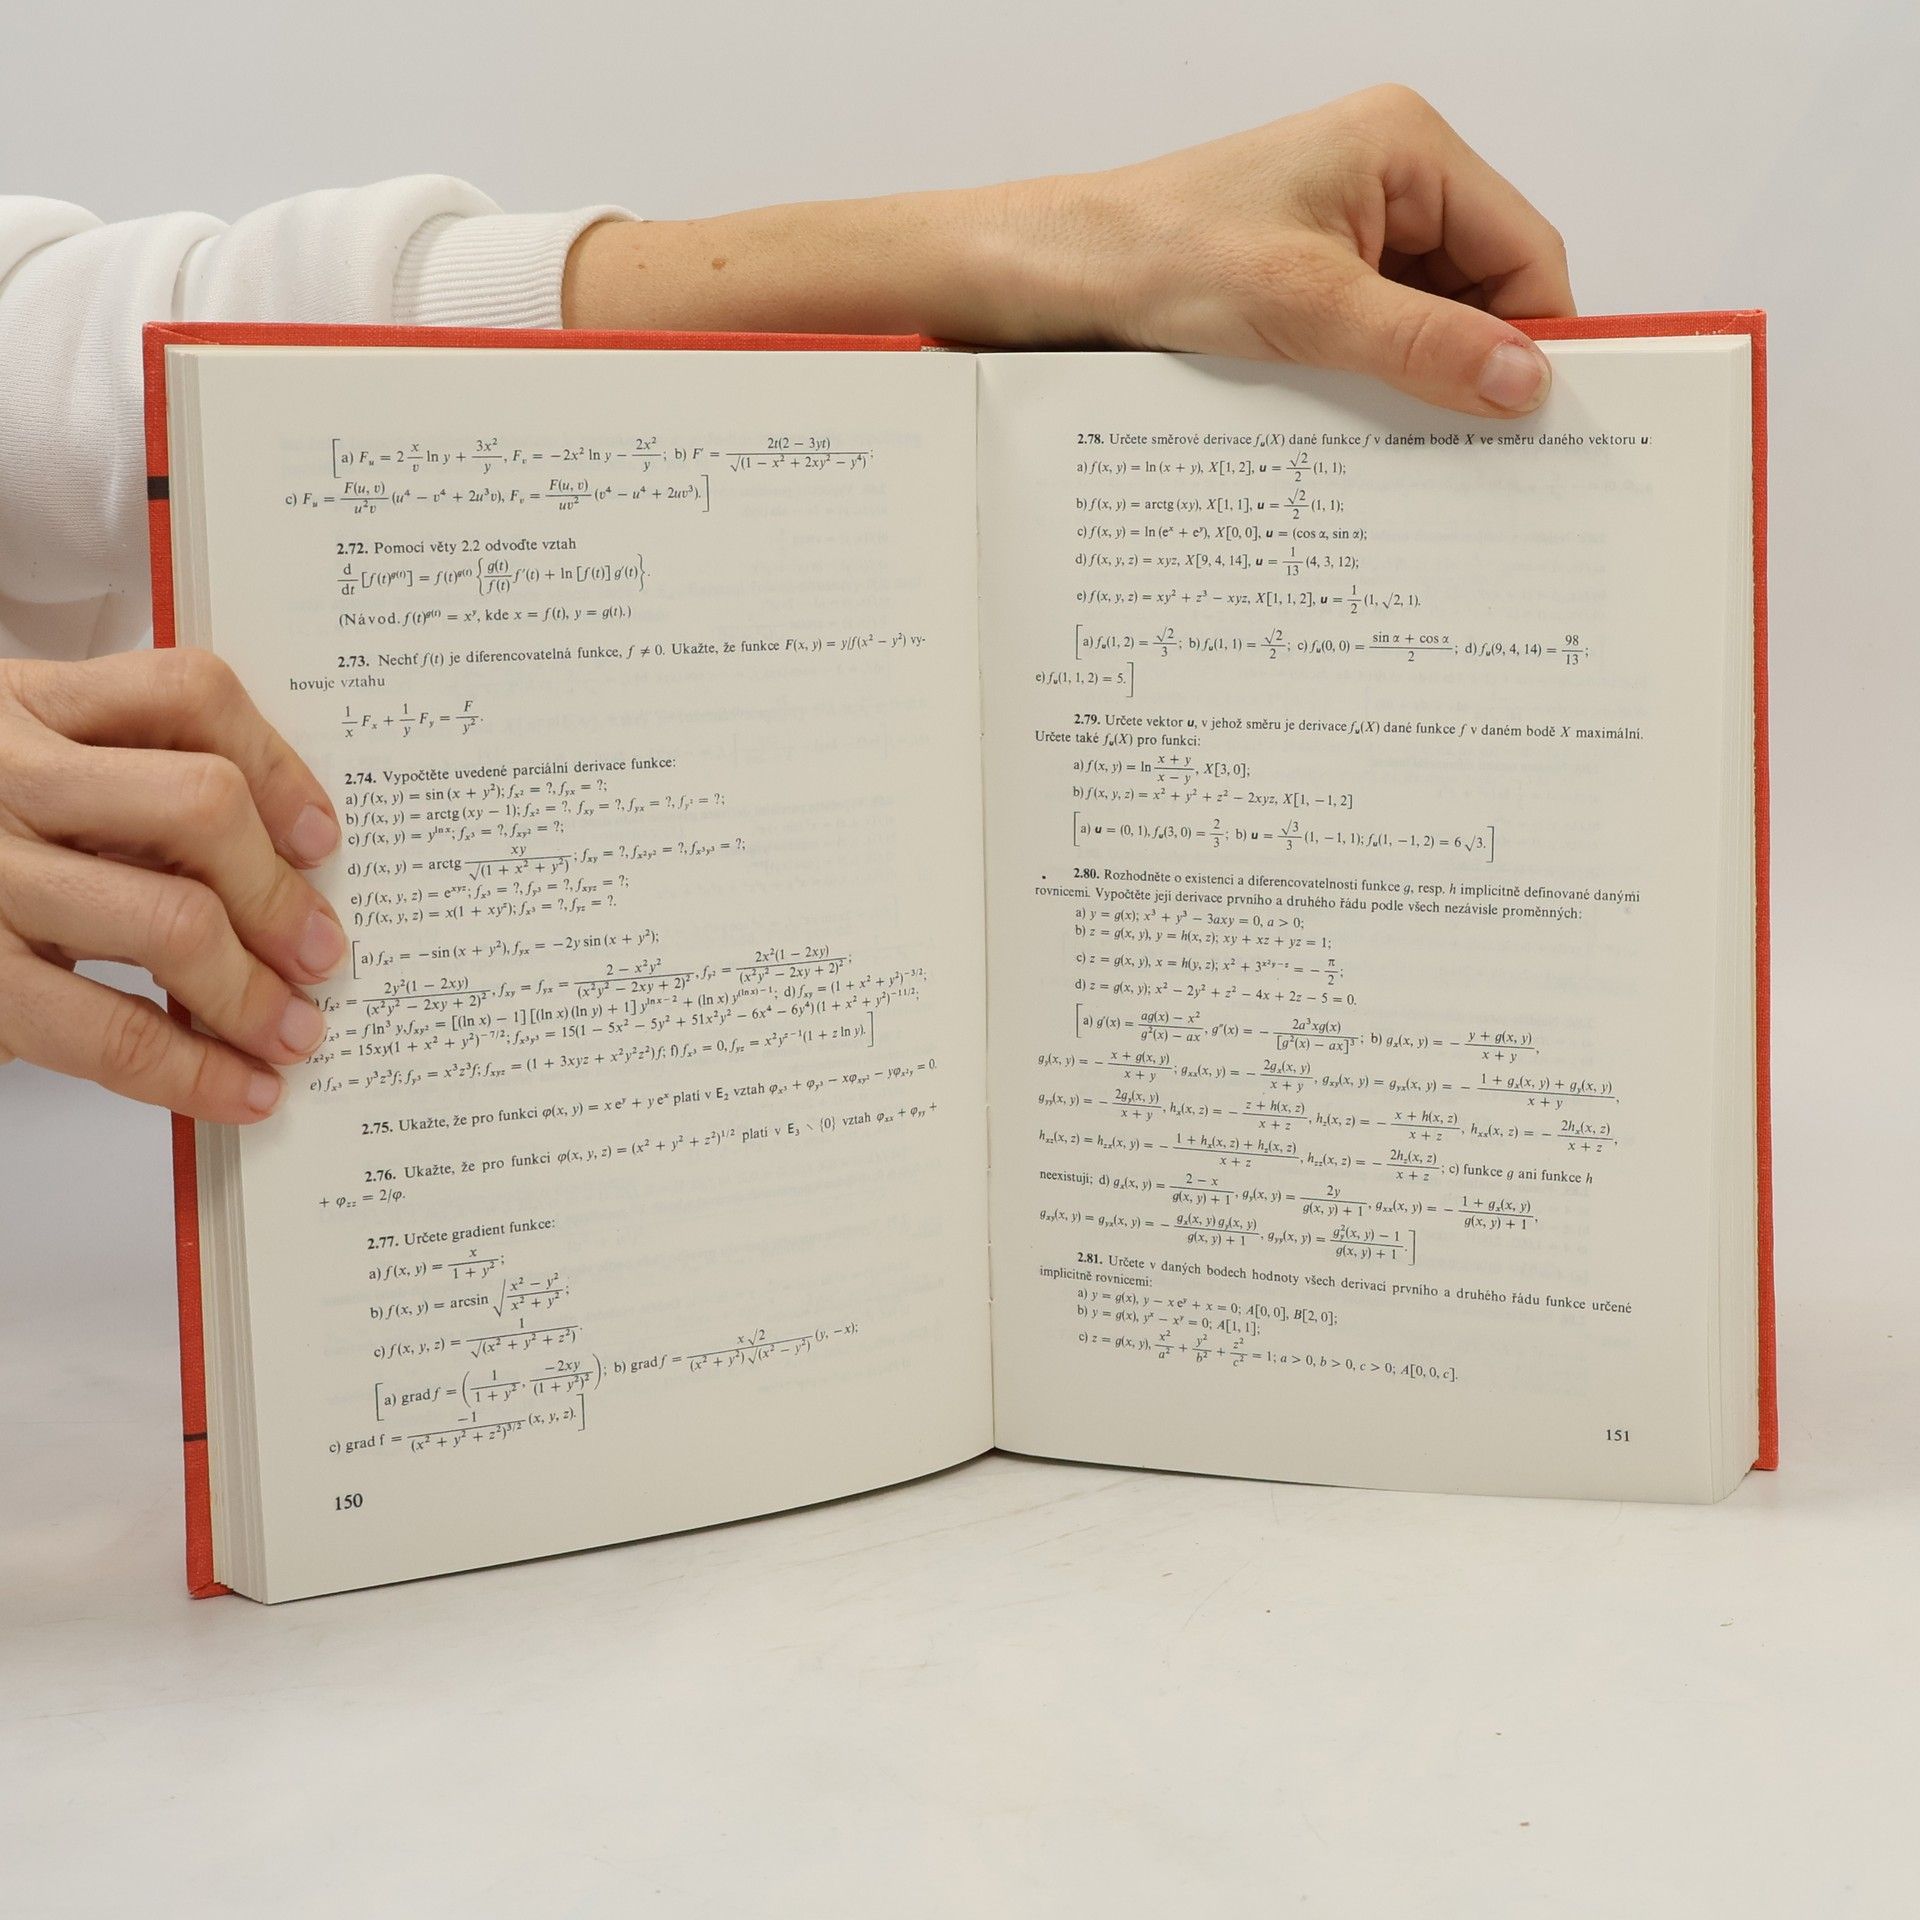 [a) F_u = 2 x/v ln y + 3x²/y, F_v = −2x² ln y − 2x²/y; b) F′ = 2t(2 − 3yt)/√(1 − x² + 2xy² − y⁴);
c) F_u = F(u, v)/u²v (u⁴ − v⁴ + 2u³v), F_v = F(u, v)/uv² (v⁴ − u⁴ + 2uv³).]
2.72. Pomocí věty 2.2 odvoďte vztah
d/dt [f(t)^g(t)] = f(t)^g(t) {g(t)/f(t) f′(t) + ln [f(t)] g′(t)}.
(Návod. f(t)^g(t) = x^y, kde x = f(t), y = g(t).)
2.73. Nechť f(t) je diferencovatelná funkce, f ≠ 0. Ukažte, že funkce F(x, y) = y/f(x² − y²) vy-
hovuje vztahu
1/x F_x + 1/y F_y = F/y².
2.74. Vypočtěte uvedené parciální derivace funkce:
a) f(x, y) = sin (x + y²); f_x² = ?, f_yx = ?;
b) f(x, y) = arctg (xy − 1); f_x² = ?, f_xy = ?, f_yx = ?, f_y² = ?;
c) f(x, y) = y^ln x; f_x³ = ?, f_xy² = ?;
d) f(x, y) = arctg xy/√(1 + x² + y²); f_xy = ?, f_x²y² = ?, f_x³y³ = ?;
e) f(x, y, z) = e^xyz; f_x³ = ?, f_y³ = ?, f_xyz = ?;
f) f(x, y, z) = x(1 + xy^z); f_x³ = ?, f_yz = ?.
[a) f_x² = −sin (x + y²), f_yx = −2y sin (x + y²);
) f_x² = 2y²(1 − 2xy)/(x²y² − 2xy + 2)², f_xy = f_yx = 2 − x²y²/(x²y² − 2xy + 2)², f_y² = 2x²(1 − 2xy)/(x²y² − 2xy + 2)²;
f_x³ = f ln³ y, f_xy² = [(ln x) − 1] [(ln x) (ln y) + 1] y^(ln x−2) + (ln x) y^((ln x)−1); d) f_xy = (1 + x² + y²)^(−3/2);
f_x²y² = 15xy(1 + x² + y²)^(−7/2); f_x³y³ = 15(1 − 5x² − 5y² + 51x²y² − 6x⁴ − 6y⁴) (1 + x² + y²)^(−11/2);
e) f_x³ = y³z³f; f_y³ = x³z³f; f_xyz = (1 + 3xyz + x²y²z²) f; f) f_x³ = 0, f_yz = x²y^(z−1)(1 + z ln y).]
2.75. Ukažte, že pro funkci φ(x, y) = x e^y + y e^x platí v E₂ vztah φ_x³ + φ_y³ − xφ_xy² − yφ_x²y = 0.
2.76. Ukažte, že pro funkci φ(x, y, z) = (x² + y² + z²)^1/2 platí v E₃ ∖ {0} vztah φ_xx + φ_yy +
+ φ_zz = 2/φ.
2.77. Určete gradient funkce:
a) f(x, y) = x/1 + y²;
b) f(x, y) = arcsin √(x² − y²/x² + y²);
c) f(x, y, z) = 1/√(x² + y² + z²).
[a) grad f = (1/1 + y², −2xy/(1 + y²)²); b) grad f = x√2/(x² + y²) √(x² − y²) (y, −x);
c) grad f = −1/(x² + y² + z²)^3/2 (x, y, z).]
150
2.78. Určete směrové derivace f_u(X) dané funkce f v daném bodě X ve směru daného vektoru u:
a) f(x, y) = ln (x + y), X[1, 2], u = √2/2 (1, 1);
b) f(x, y) = arctg (xy), X[1, 1], u = √2/2 (1, 1);
c) f(x, y) = ln (e^x + e^y), X[0, 0], u = (cos α, sin α);
d) f(x, y, z) = xyz, X[9, 4, 14], u = 1/13 (4, 3, 12);
e) f(x, y, z) = xy² + z³ − xyz, X[1, 1, 2], u = 1/2 (1, √2, 1).
[a) f_u(1, 2) = √2/3; b) f_u(1, 1) = √2/2; c) f_u(0, 0) = sin α + cos α/2; d) f_u(9, 4, 14) = 98/13;
e) f_u(1, 1, 2) = 5.]
2.79. Určete vektor u, v jehož směru je derivace f_u(X) dané funkce f v daném bodě X maximální.
Určete také f_u(X) pro funkci:
a) f(x, y) = ln x + y/x − y, X[3, 0];
b) f(x, y, z) = x² + y² + z² − 2xyz, X[1, −1, 2]
[a) u = (0, 1), f_u(3, 0) = 2/3; b) u = √3/3 (1, −1, 1); f_u(1, −1, 2) = 6 √3.]
2.80. Rozhodněte o existenci a diferencovatelnosti funkce g, resp. h implicitně definované danými
rovnicemi. Vypočtěte její derivace prvního a druhého řádu podle všech nezávisle proměnných:
a) y = g(x); x³ + y³ − 3axy = 0, a > 0;
b) z = g(x, y), y = h(x, z); xy + xz + yz = 1;
c) z = g(x, y), x = h(y, z); x² + 3^(x²y−z) = −π/2;
d) z = g(x, y); x² − 2y² + z² − 4x + 2z − 5 = 0.
[a) g′(x) = ag(x) − x²/g²(x) − ax, g″(x) = − 2a³xg(x)/[g²(x) − ax]³; b) g_x(x, y) = − y + g(x, y)/x + y,
g_y(x, y) = − x + g(x, y)/x + y; g_xx(x, y) = − 2g_x(x, y)/x + y, g_xy(x, y) = g_yx(x, y) = − 1 + g_x(x, y) + g_y(x, y)/x + y,
g_yy(x, y) = − 2g_y(x, y)/x + y, h_x(x, z) = − z + h(x, z)/x + z, h_z(x, z) = − x + h(x, z)/x + z, h_xx(x, z) = − 2h_x(x, z)/x + z,
h_xz(x, z) = h_zx(x, y) = − 1 + h_x(x, z) + h_z(x, z)/x + z, h_zz(x, z) = − 2h_z(x, z)/x + z; c) funkce g ani funkce h
neexistují; d) g_x(x, y) = 2 − x/g(x, y) + 1, g_y(x, y) = 2y/g(x, y) + 1, g_xx(x, y) = − 1 + g_x(x, y)/g(x, y) + 1,
g_xy(x, y) = g_yx(x, y) = − g_x(x, y) g_y(x, y)/g(x, y) + 1, g_yy(x, y) = g_y²(x, y) − 1/g(x, y) + 1.]
2.81. Určete v daných bodech hodnoty všech derivací prvního a druhého řádu funkce určené
implicitně rovnicemi:
a) y = g(x), y − x e^y + x = 0; A[0, 0], B[2, 0];
b) y = g(x), y^x − x^y = 0; A[1, 1];
c) z = g(x, y), x²/a² + y²/b² + z²/c² = 1; a > 0, b > 0, c > 0; A[0, 0, c].
151